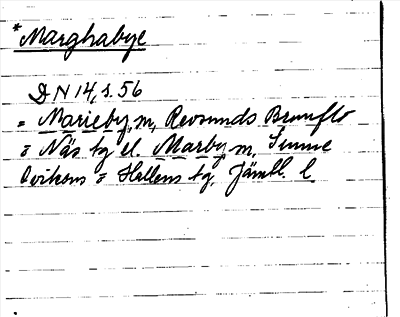 *Marghabye
DN 14, s. 56
= Marieby, m, Revsunds Brunflo
o Näs tg el. Marby, m, Sunne
Ovikens o Hallens tg, Jämtl. l.